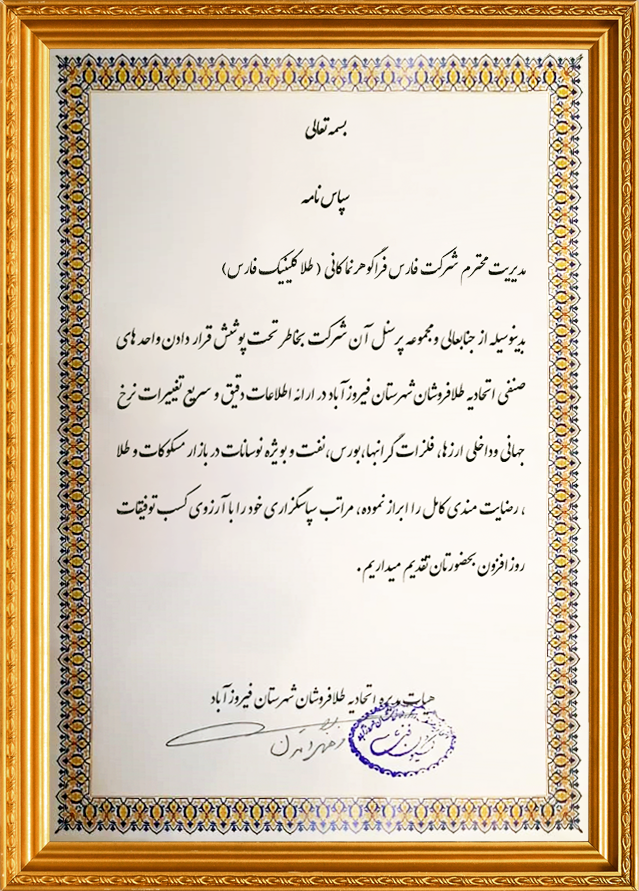 بسمه تعالی
سپاس نامه
مدیریت محترم شرکت فارس فراگوهر نماکانی (طلا کلینیک فارس)
بدینوسیله از جنابعالی ومجموعه پرسنل آن شرکت بخاطر تحت پوشش قرار دادن واحد های
صنفی اتحادیه طلافروشان شهرستان فیروزآباد در ارائه اطلاعات دقیق و سریع تغییرات نرخ
جهانی وداخلی ارزها، فلزات گرانبها، بورس، نفت و بویژه نوسانات در بازار مسکوکات و طلا
، رضایت مندی کامل را ابراز نموده، مراتب سپاسگزاری خود را با آرزوی کسب توفیقات
روز افزون بحضورتان تقدیم میداریم.
هیات مدیره اتحادیه طلافروشان شهرستان فیروزآباد